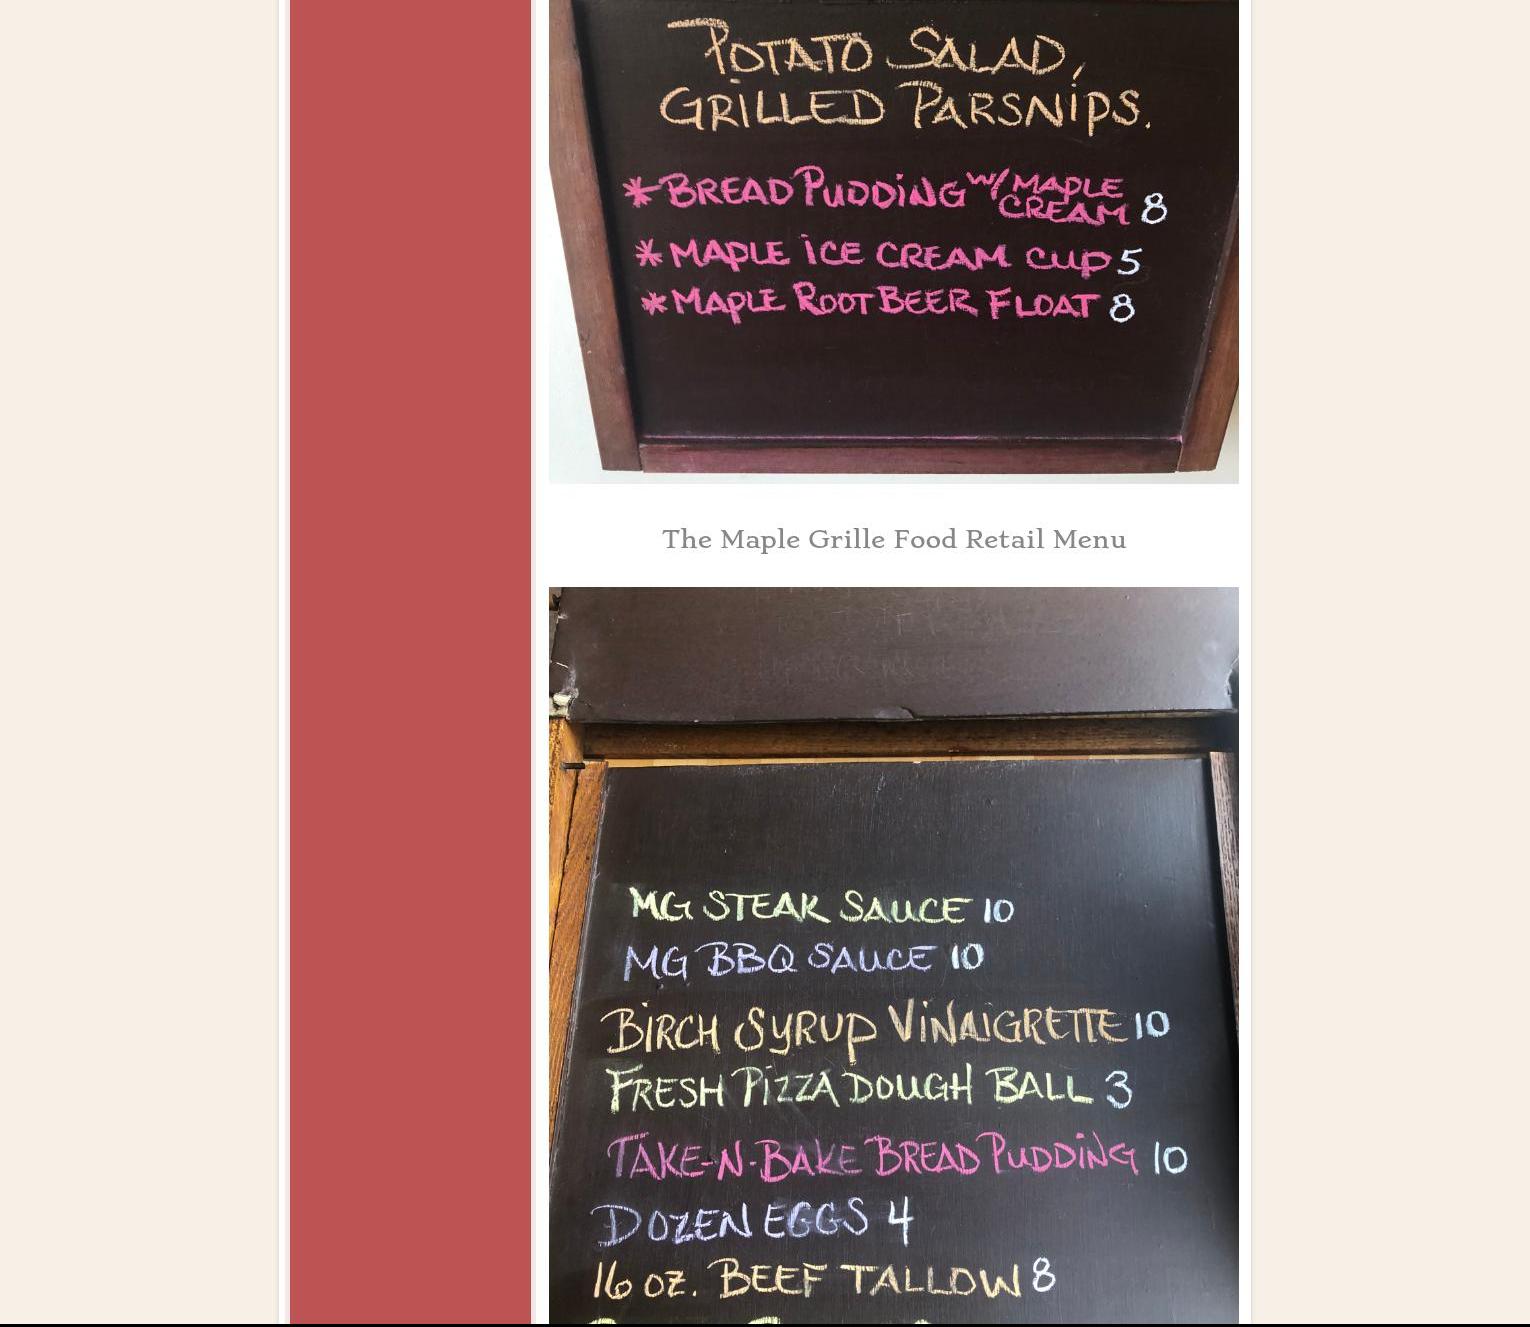 POTATO SALAD,
GRILLED PARSNIPS.
*BREAD PUDDING W/ MAPLE CREAM 8
*MAPLE ICE CREAM CUP 5
*MAPLE ROOT BEER FLOAT 8
The Maple Grille Food Retail Menu
MG STEAK SAUCE 10
MG BBQ SAUCE 10
BIRCH SYRUP VINAIGRETTE 10
FRESH PIZZA DOUGH BALL 3
TAKE-N-BAKE BREAD PUDDING 10
DOZEN EGGS 4
16 OZ. BEEF TALLOW 8